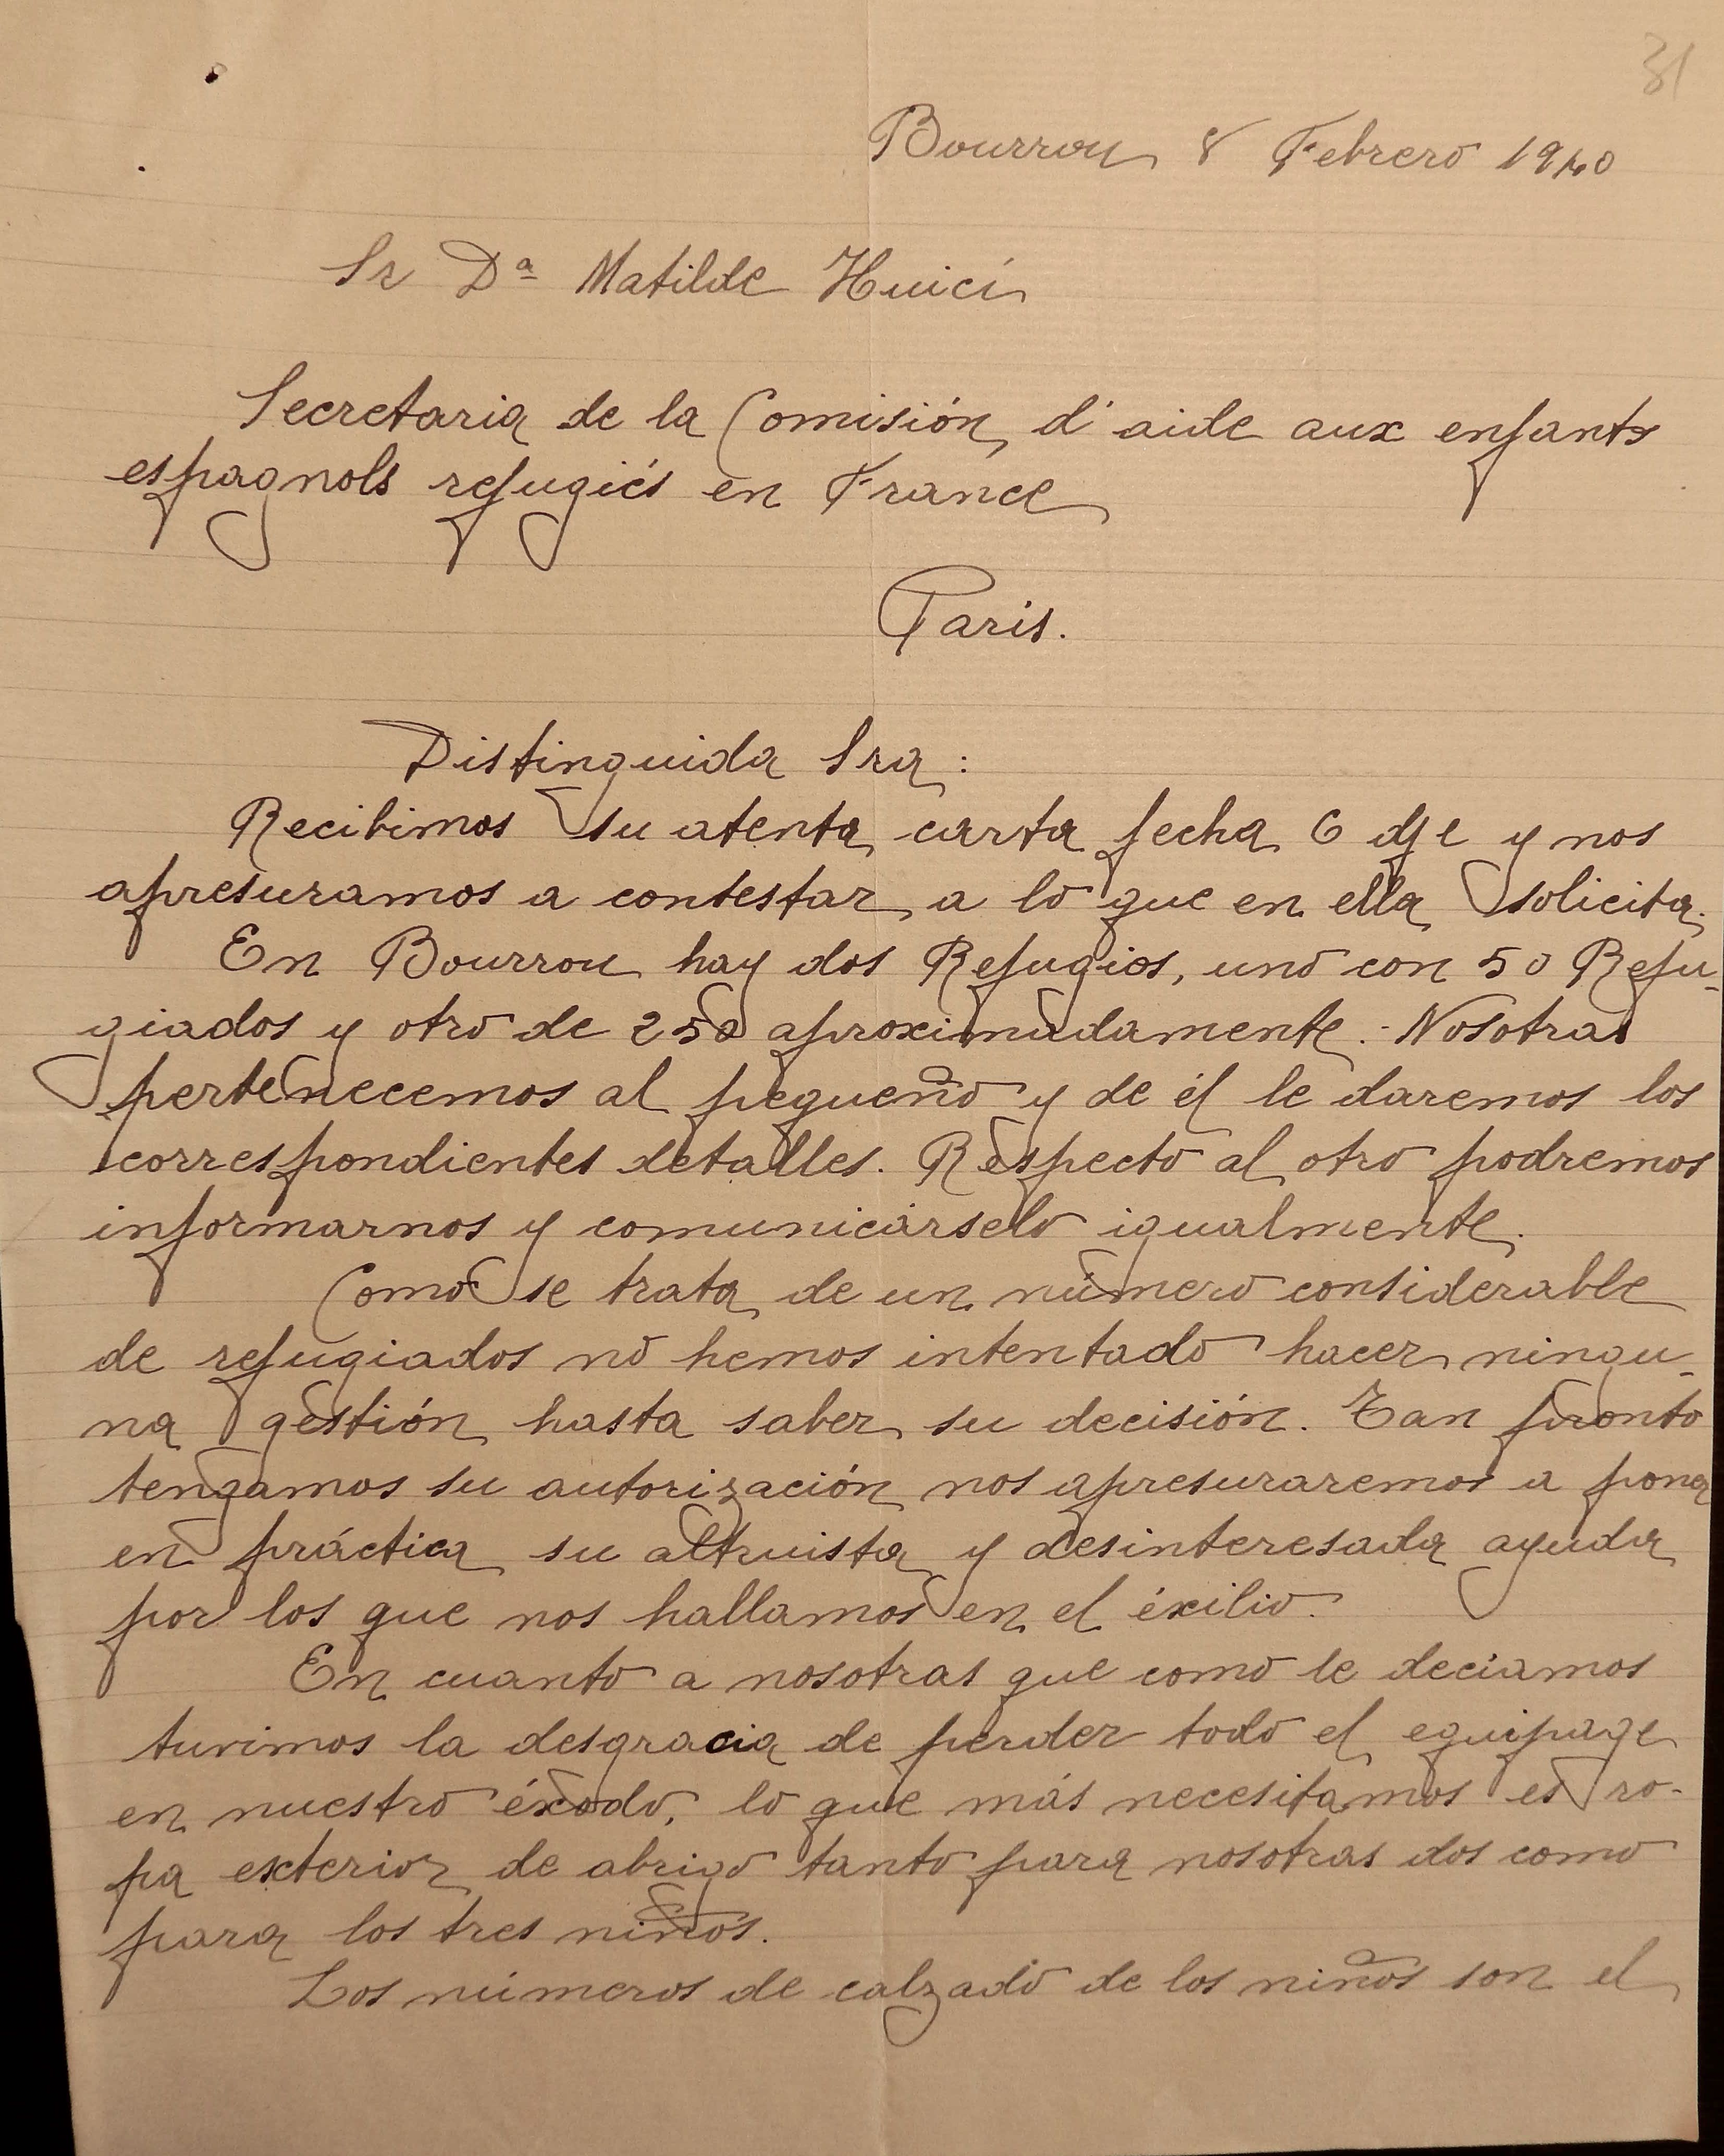 31
Bourrou 8 Febrero 1940
Sr Dª Matilde Huici
Secretaria de la Comisión d'aide aux enfants
espagnols refugiés en France
Paris.
Distinguida Sra:
Recibimos su atenta carta fecha 6 y nos
apresuramos a contestar a lo que en ella solicita.
En Bourrou hay dos Refugios, uno con 50 Refu-
giados y otro de 250 aproximadamente. Nosotras
pertenecemos al pequeño y de él le daremos los
correspondientes detalles. Respecto al otro podremos
informarnos y comunicárselo igualmente.
Como se trata de un número considerable
de refugiados no hemos intentado hacer ningu-
na gestión hasta saber su decisión. Tan pronto
tengamos su autorización nos apresuraremos a poner
en práctica su altruista y desinteresada ayuda
por los que nos hallamos en el éxilio.
En cuanto a nosotras que como le deciamos
tuvimos la desgracia de perder todo el equipage
en nuestro éxodo, lo que más necesitamos es ro-
pa exterior de abrigo tanto para nosotras dos como
para los tres niños.
Los números de calzado de los niños son el